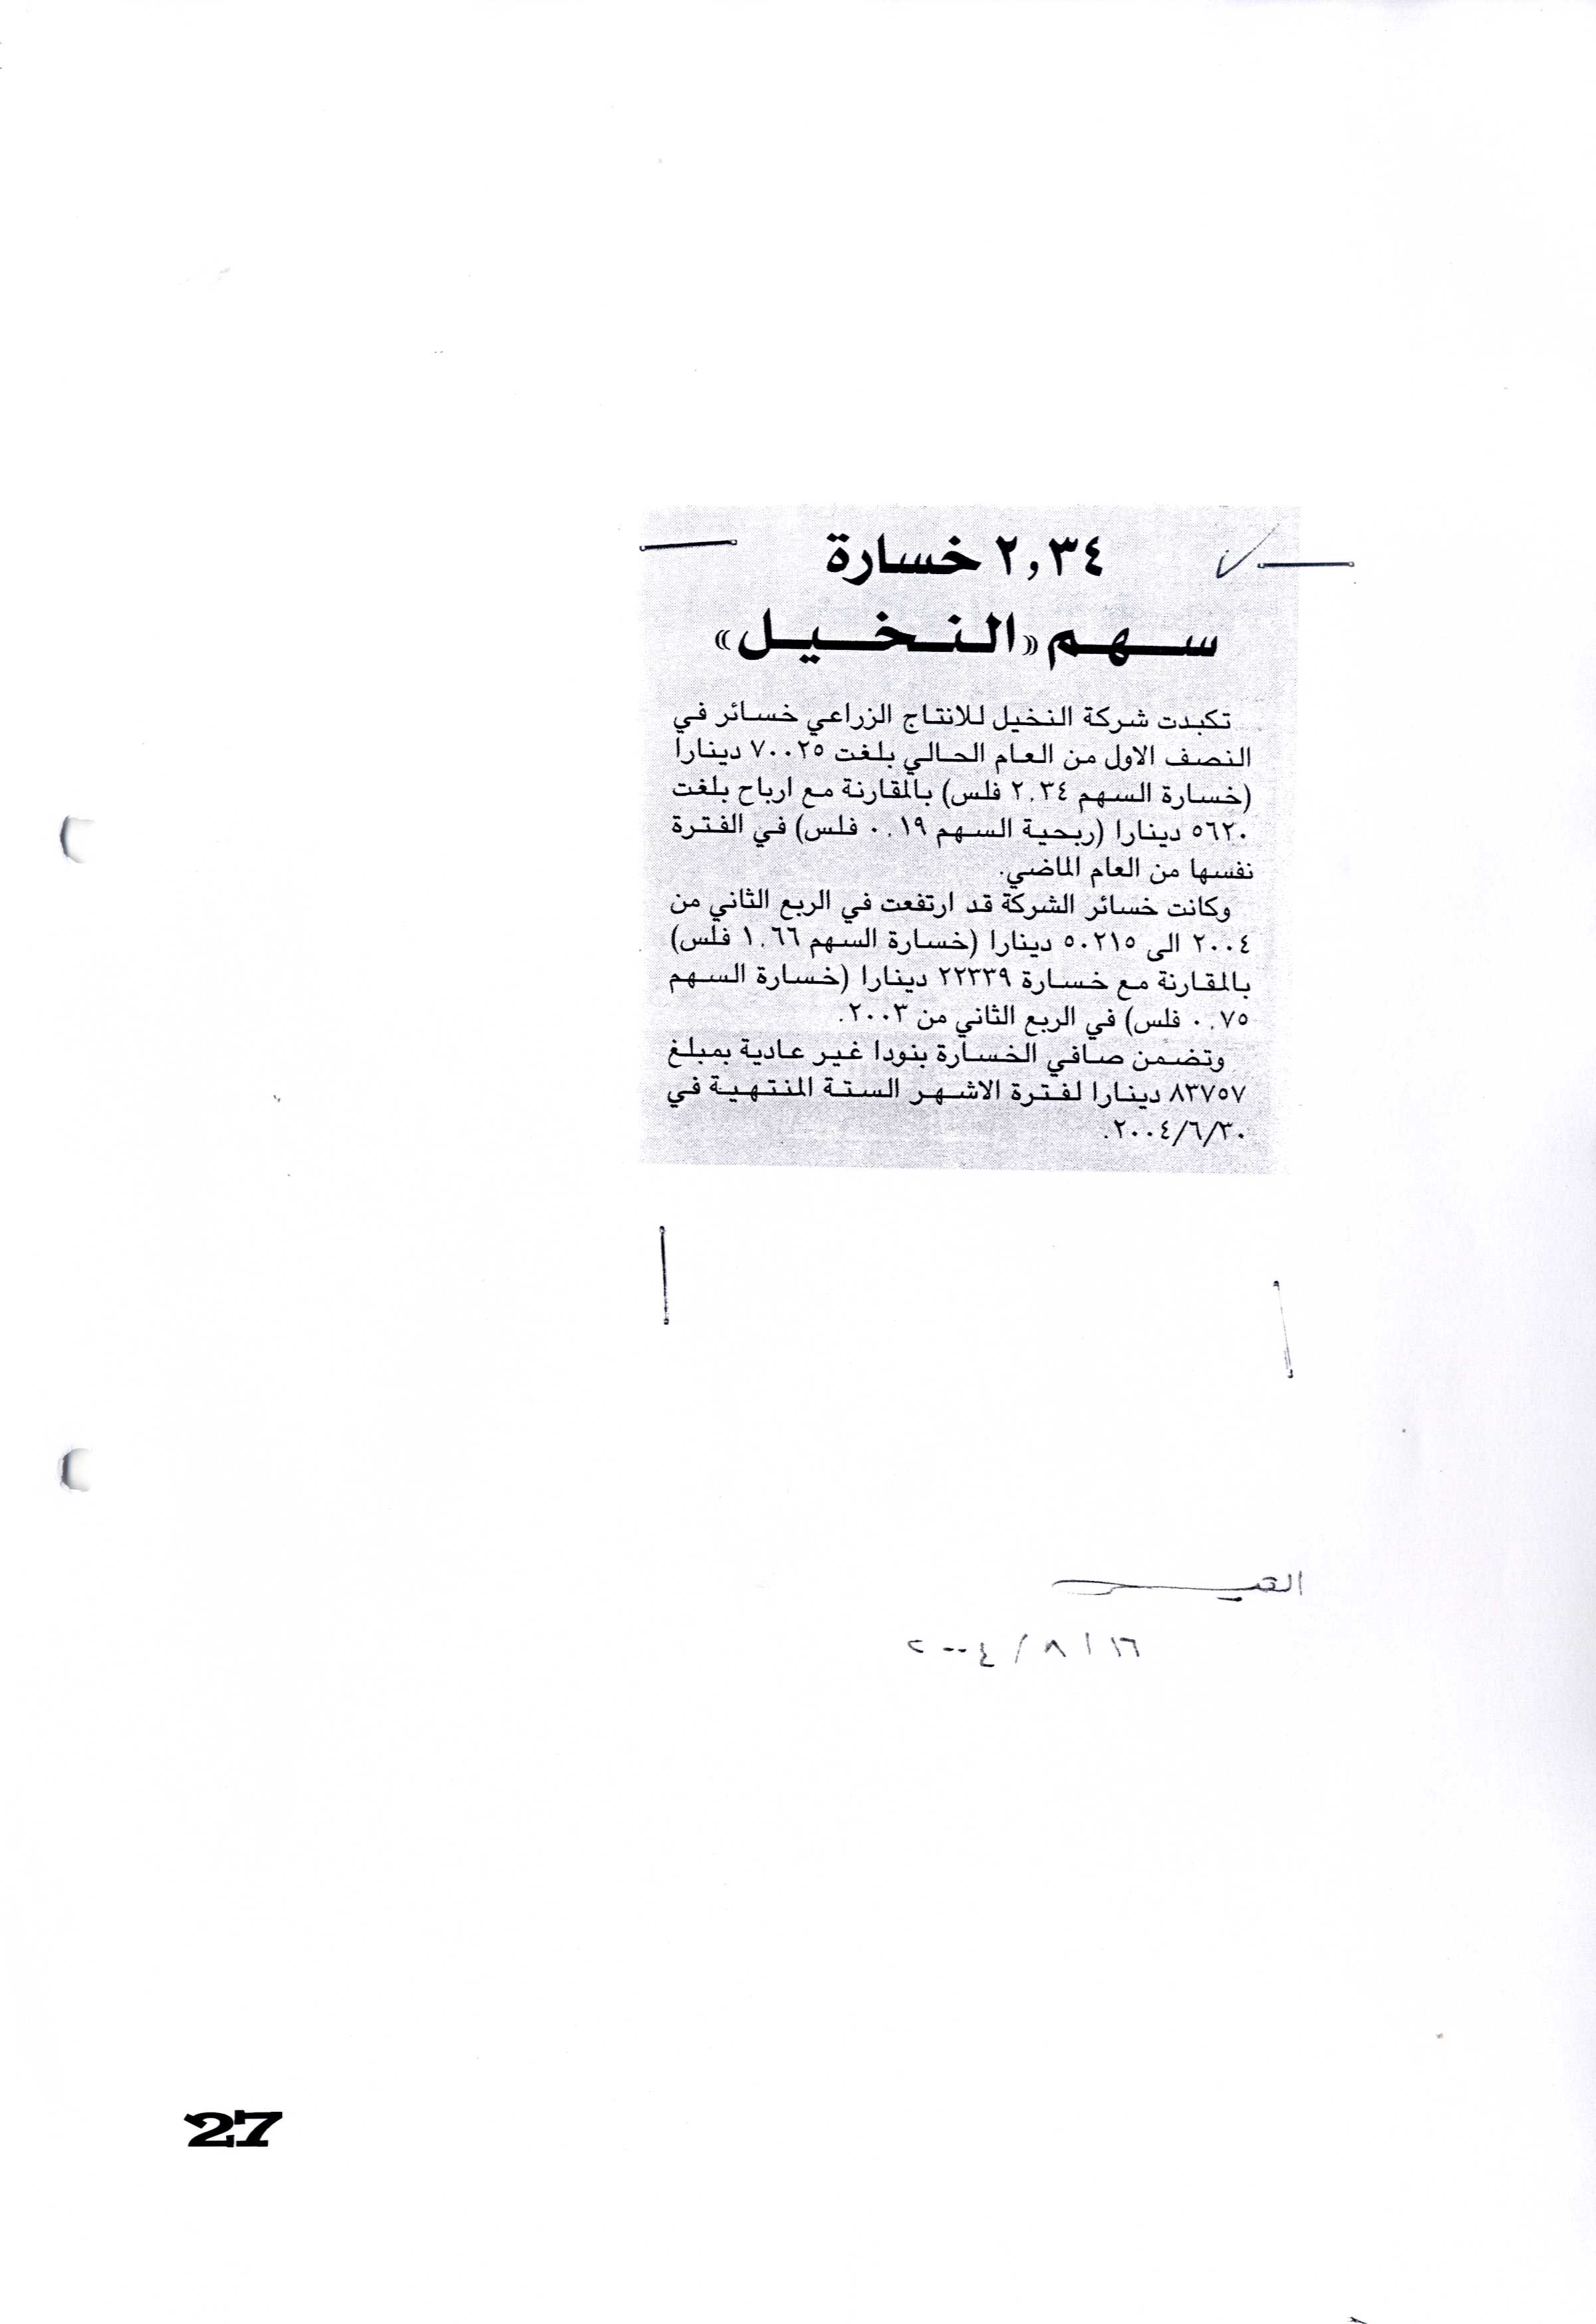 ٢,٣٤ خسارة
سهم «النخيل»
تكبدت شركة النخيل للانتاج الزراعي خسائر في
النصف الاول من العام الحالي بلغت ٧٠٠٢٥ دينارا
(خسارة السهم ٢.٣٤ فلس) بالمقارنة مع ارباح بلغت
٥٦٢٠ دينارا (ربحية السهم ٠.١٩ فلس) في الفترة
نفسها من العام الماضي.
وكانت خسائر الشركة قد ارتفعت في الربع الثاني من
٢٠٠٤ الى ٥٠٢١٥ دينارا (خسارة السهم ١.٦٦ فلس)
بالمقارنة مع خسارة ٢٢٣٣٩ دينارا (خسارة السهم
٠.٧٥ فلس) في الربع الثاني من ٢٠٠٣.
وتضمن صافي الخسارة بنودا غير عادية بمبلغ
٨٣٧٥٧ دينارا لفترة الاشهر الستة المنتهية في
٢٠٠٤/٦/٣٠.
القبس
١٦/٨/٢٠٠٤
27